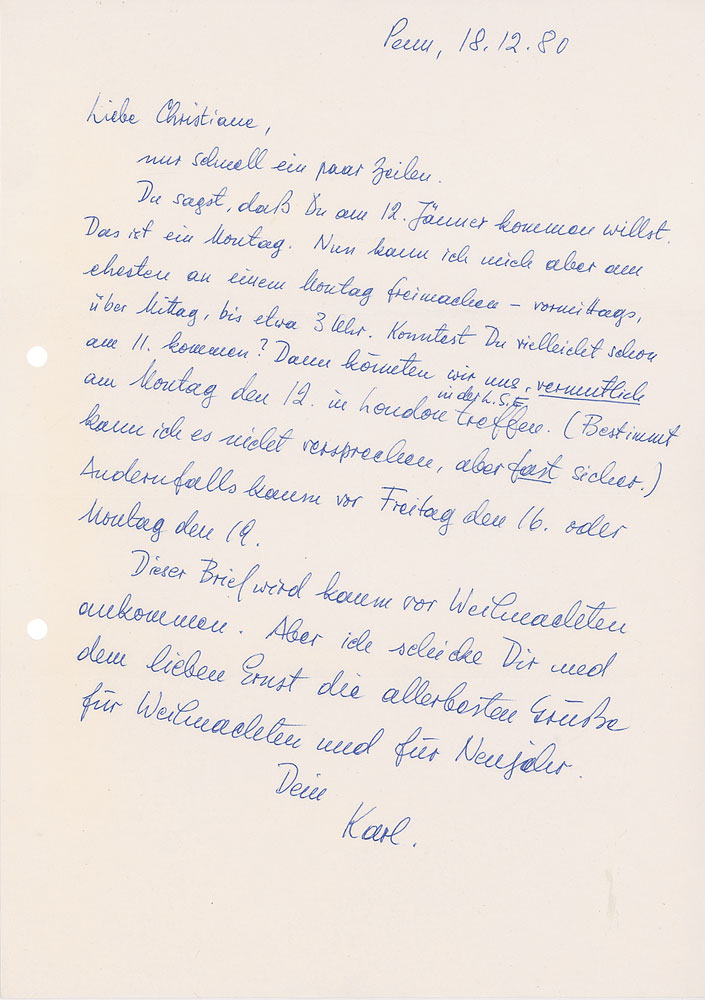 Penn, 18.12.80
Liebe Christiane,
nur schnell ein paar Zeilen.
Du sagst, daß Du am 12. Jänner kommen willst.
Das ist ein Montag. Nun kann ich mich aber am
ehesten an einem Montag freimachen – vormittags,
über Mittag, bis etwa 3 Uhr. Könntest Du vielleicht schon
am 11. kommen? Dann könnten wir uns, vermutlich
in der L.S.E.
am Montag den 12. in London treffen. (Bestimmt
kann ich es nicht versprechen, aber fast sicher.)
Andernfalls kaum vor Freitag den 16. oder
Montag den 19.
Dieser Brief wird kaum vor Weihnachten
ankommen. Aber ich schicke Dir und
dem lieben Ernst die allerbesten Grüße
für Weihnachten und für Neujahr.
Dein
Karl.